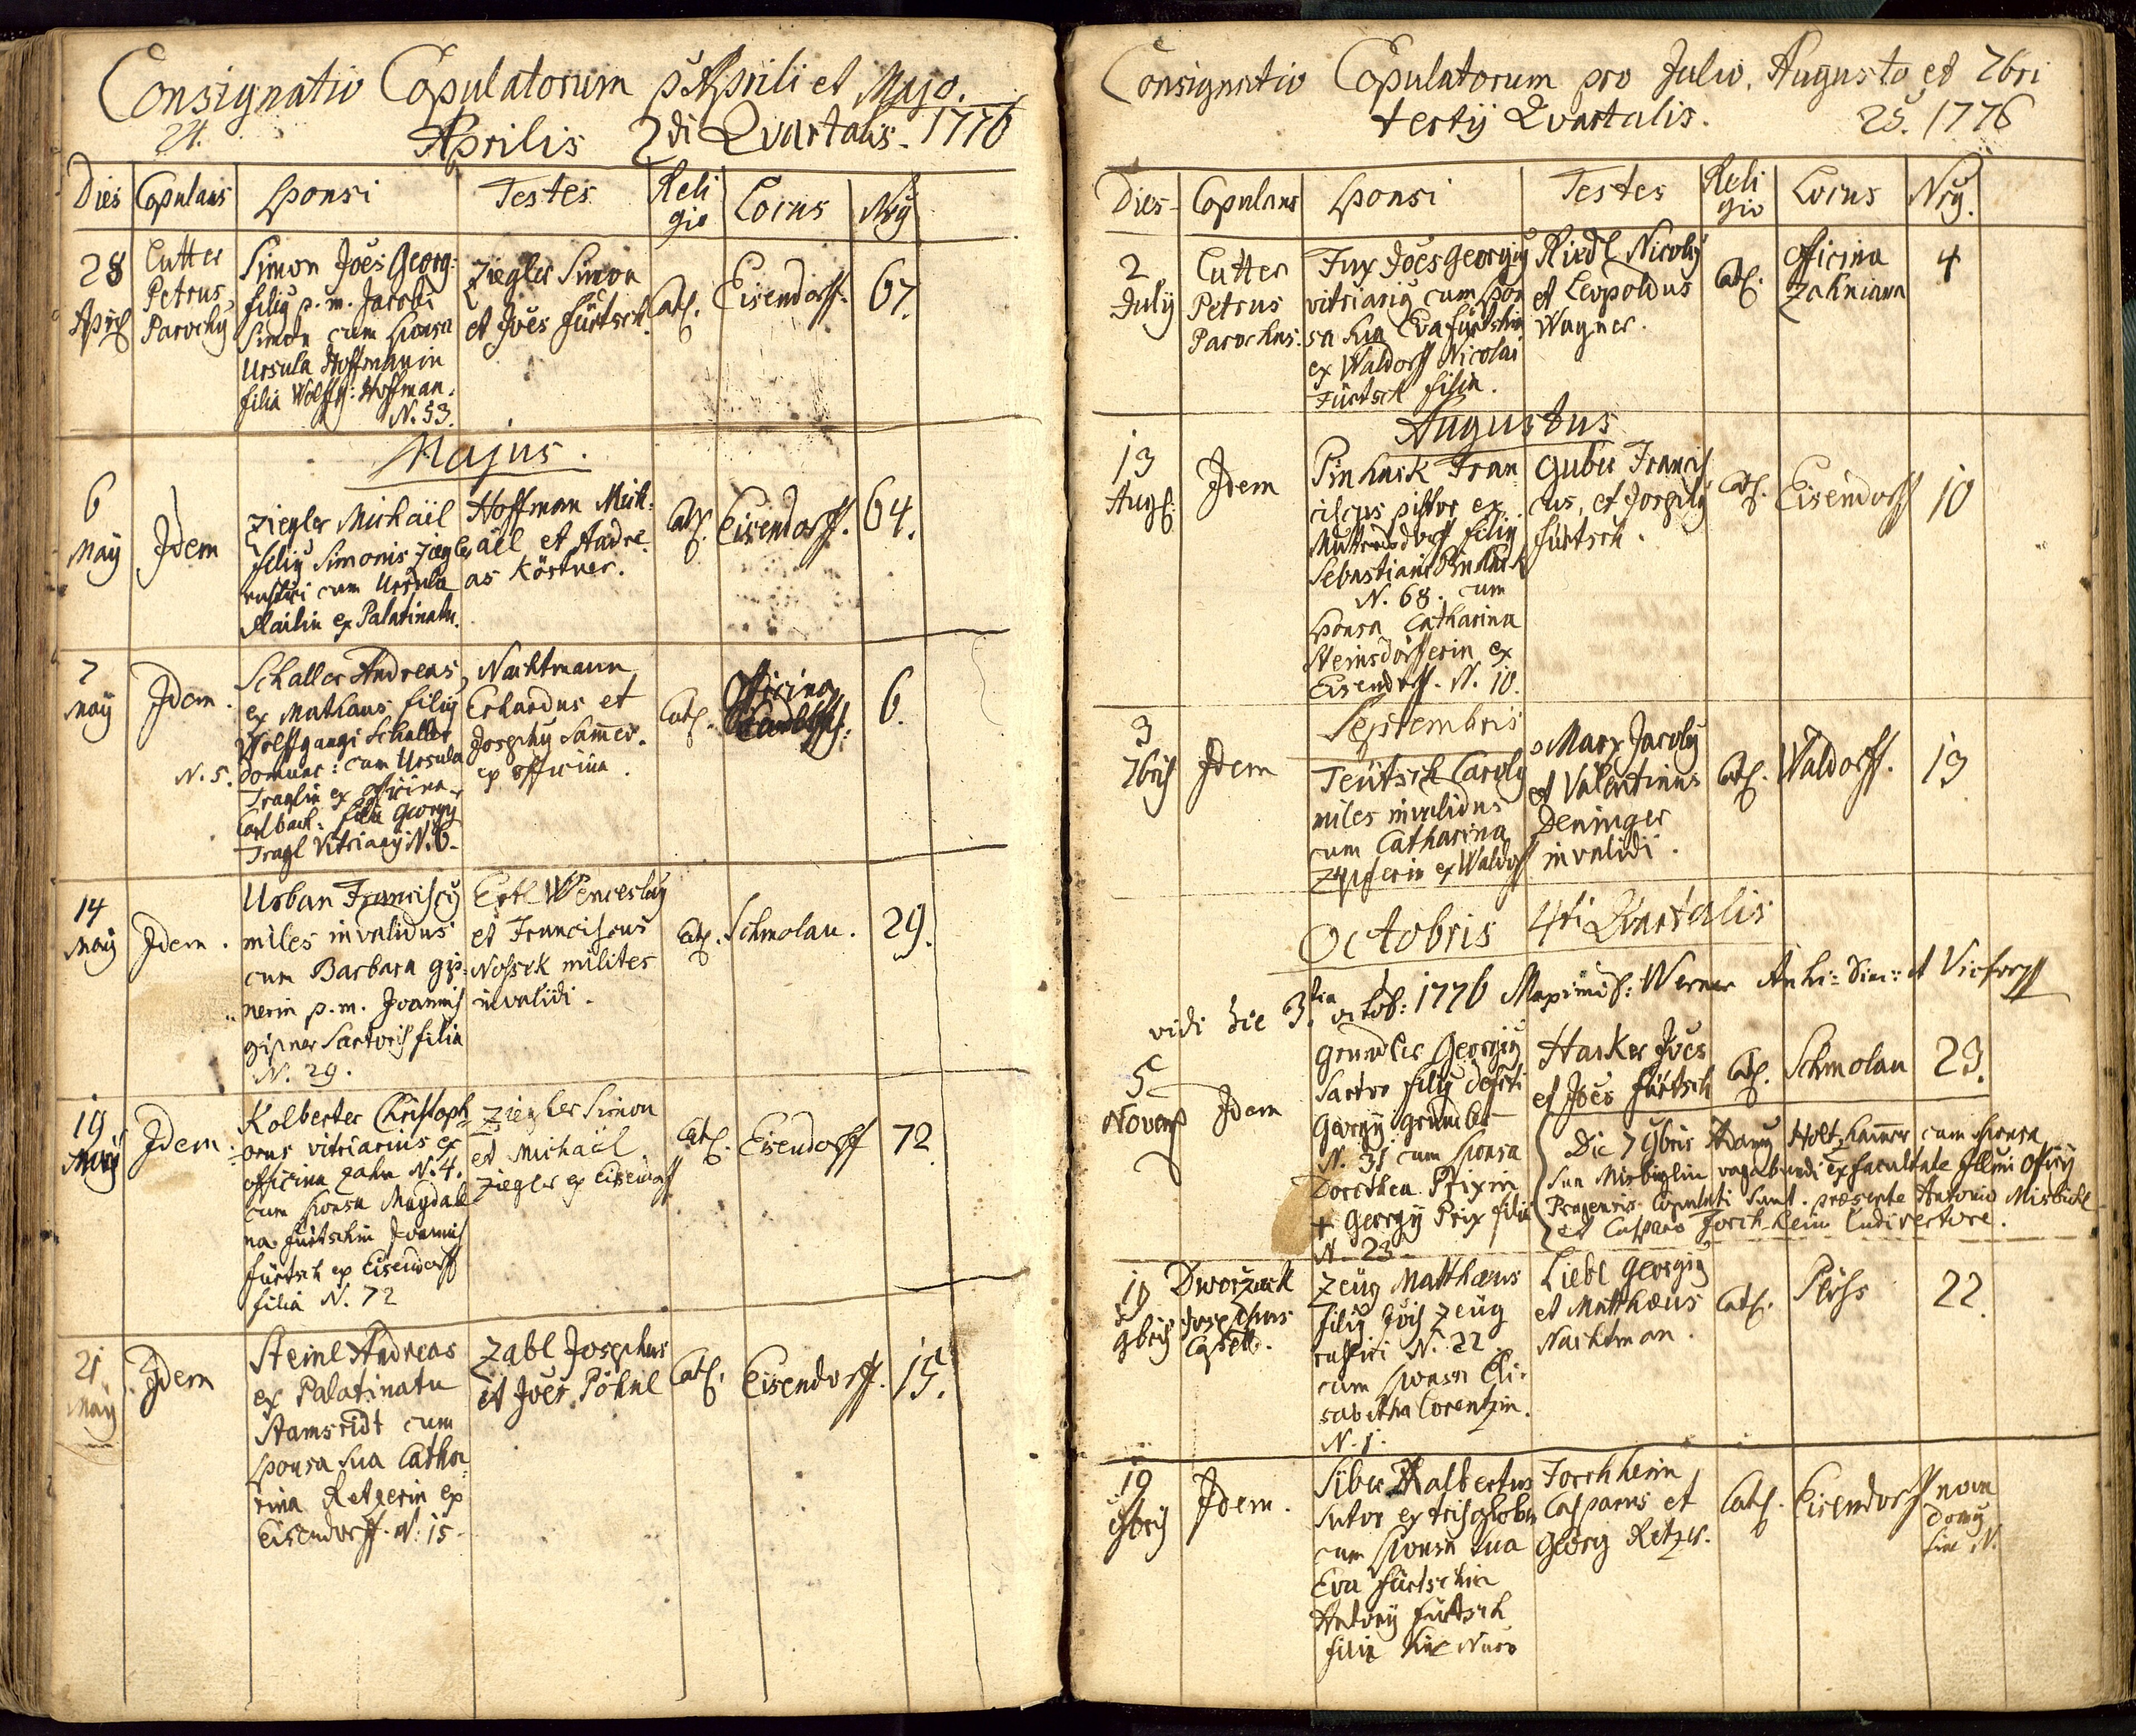 Consignatio Copulatorum p Aprili et Majo.
24.
Aprilis 2di Quartalis. 1776
Dies Copulans Sponsi Testes Religio Locus Nrꝰ
28
Apri
Cutter
Petrus
Parochꝰ
Simon Joes Georg:
filiꝰ p. m. Jacobi
Simon cum sponsa
Ursula Hoffmanin
filia Wolffg: Hoffman.
N. 53.
Ziegler Simon
et Joes Fürtsch
Cath.
Eisendorff.
67.
Majus.
6
Maÿ
Idem
Ziegler Michaël
filiꝰ Simonis Ziegler
rustici cum Ursula
ex Palatinatu.
Hoffman Mich-
aël et Andre
as Körtner.
Cath.
Eisendorff.
64.
7
Maÿ
Idem.
Schaller Andreas
ex Mathaus filiꝰ
Wolffgangi Schaller
N. 5. cum Ursula
Traglin ex officina
Carlbach: filia Georgÿ
Tragl Vitriarÿ N. 6.
Nachtmann
Erhardus et
Josephꝰ Samer.
ex officina.
Cath.
Officina
6.
14
Maÿ
Idem.
Urban Franciscꝰ
miles invalidus
cum Barbara gis-
nerin p. m. Joannis
gisner Sartoris filia
N. 29.
Ertl Wenceslaꝰ
et Franciscus
Nossek milites
invalidi.
Cath.
Schmolau.
29.
19
Maÿ
Idem.
Kolberter Christoph-
orus vitriarius ex
officina Zahn N. 4.
cum sponsa Magdale
na Fürtschin Joannis
Fürtsch ex Eisendorff
filia N. 72
Ziegler Simon
et Michaël
Ziegler ex Eisendorff
Cath.
Eisendorff
72
21
Maÿ
Idem
Steinl Andreas
ex Palatinatu
Stamsridt cum
sponsa sua Catha-
rina Retzerin ex
Eisendorff. N. 15.
Zabl Josephus
et Joes Pöhnl
Cath.
Eisendorff.
15.
Consignatio Copulatorum pro Julio, Augusto et 7bri
tertÿ Quartalis.
25. 1776
Dies Copulans Sponsi Testes Religio Locus Nrꝰ.
2
Julÿ
Cutter
Petrus
Parochus.
Fux Joes Georgiꝰ
vitriariꝰ cum spon
sa sua Eva Fürtschin
ex Waldorff Nicolai
Fürtsch filia.
Riedl Nicolꝰ
et Leopoldus
Wagner.
Cath.
Officina
Zahniana
4
Augustus
13
Aug
Idem
Pinhack Fran-
ciscus pistor ex
Muttersdorff filiꝰ
Sebastiani Pinhack
N. 68. cum
sponsa Catharina
Steinsdörfferin ex
Eisendorff. N. 10.
Guber Francis
cus, et Josephꝰ
Fürtsch.
Cath.
Eisendorff
10
Septembris
3
7bris
Idem
Teütsch Carolꝰ
miles invalidus
cum Catharina
Zipserin ex Waldorff
Marx Jacobꝰ
et Valentinus
Deninger
invalidi.
Cath.
Waldorff.
13
Octobris 4ti Quartalis
vidi die 3tia octob: 1776 Maximil: Werner
5
Novemb
Idem
Grundler Georgiꝰ
Sartor filiꝰ
Georgÿ Grundler
N. 31 cum sponsa
Dorothea Prixin
+ Georgÿ Prix filia
N. 23.
Hacker Joes
et Joes Fürtsch
Cath.
Schmolau
23.
Die 7 9bris Adamꝰ Holtzhamer cum sponsa
sua Misbiglin vagabundi ex facultate Illmi Officÿ
Pragensis copulati sunt. præsente Antonio Misbichl
et Casparo Forchheim Ludirectore.
19
9bris
Dworzack
Josephus
Capell.
Zeüg Matthaeus
filiꝰ Jois Zeüg
rustici N. 22.
cum sponsa Eli-
sabetha Lorentzin.
N. 1.
Liebl Georgiꝰ
et Matthæus
Nachtman.
Cath.
Plöss
22
19
9bris
Idem.
Siber Adalbertus
Sutor ex
cum sponsa sua
Eva Fürtschin
Antonÿ Fürtsch
filia sine Nuro
Forchheim
Casparus et
Georg Retzer.
Cath.
Eisendorff
nova
domꝰ
sine N.